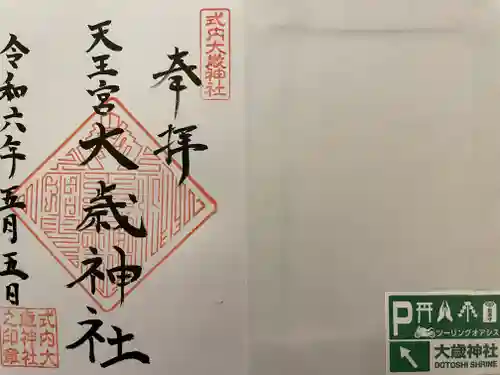 式内大歳神社
奉拝
天王宮大歳神社
令和六年五月五日
式内大
歳神社
之印章
P
ツーリングオアシス
大歳神社
OOTOSHI SHRINE